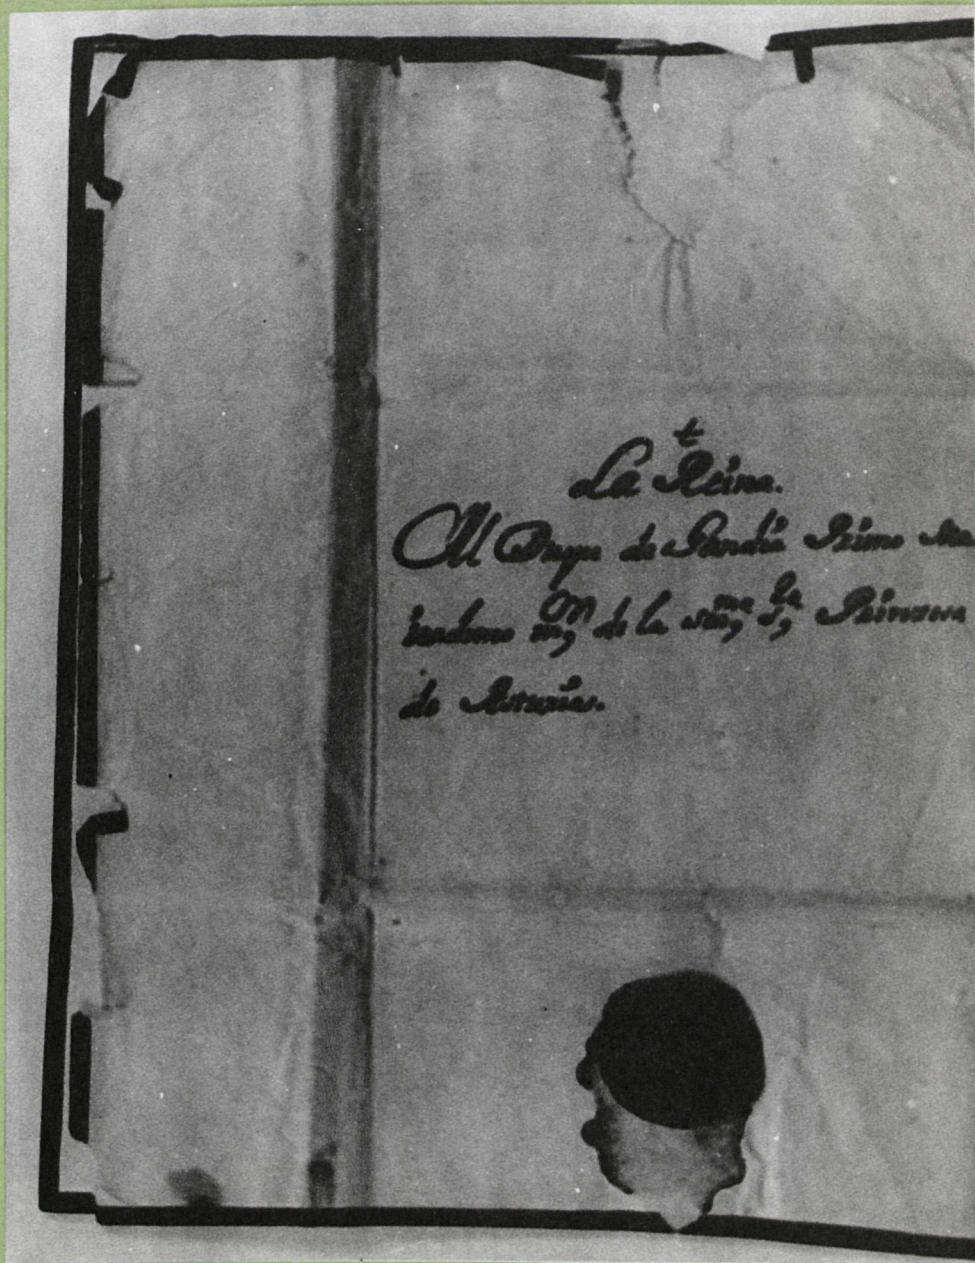 t
La Reina.
Al Duque de Gandía Primo Ma
iordomo m^or de la ser^ma s^ra Princesa
de Asturias.